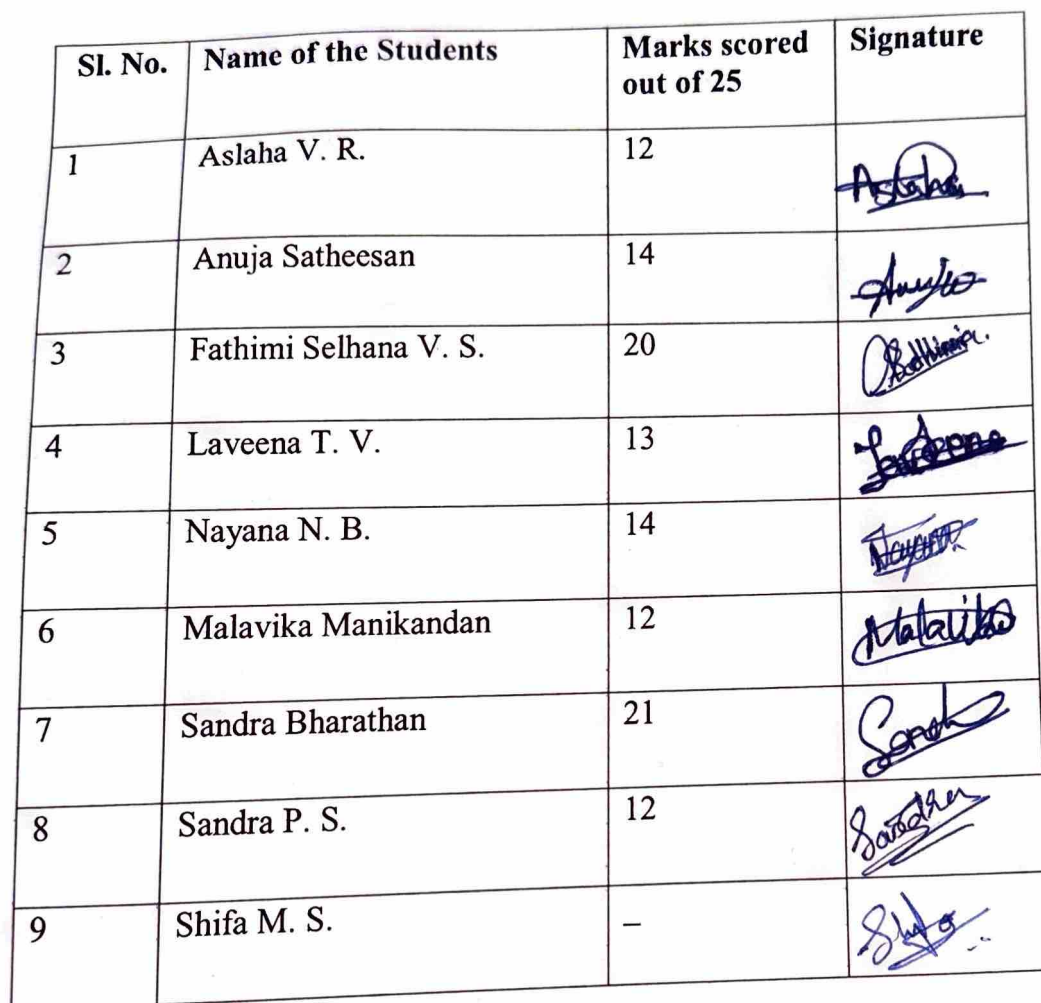 Sl. No. Name of the Students Marks scored Signature
out of 25
1 Aslaha V. R. 12 Aslaha
2 Anuja Satheesan 14 Anuja
3 Fathimi Selhana V. S. 20
4 Laveena T. V. 13 Laveena
5 Nayana N. B. 14 Nayana
6 Malavika Manikandan 12 Malavika
7 Sandra Bharathan 21
8 Sandra P. S. 12 Sandra
9 Shifa M. S. – Shifa